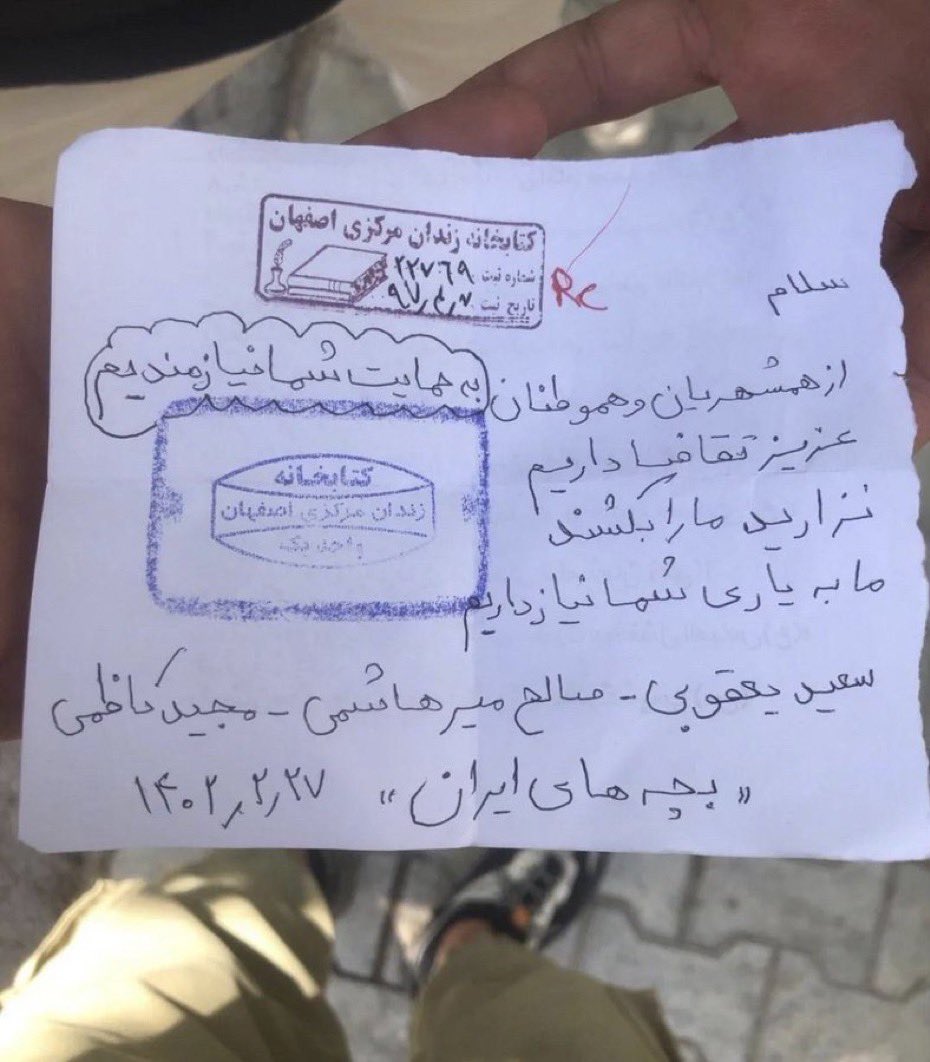 کتابخانه زندان مرکزی اصفهان
شماره ثبت ۲۲۷٦۹
تاریخ ثبت ۹۷٫۴٫۷
Re
سلام
از همشهریان و هموطنان
به حمایت شما نیازمندیم
عزیز تقاضا داریم
نزارید ما را بکشند
ما به یاری شما نیاز داریم
کتابخانه
زندان مرکزی اصفهان
واحد یک
سعید یعقوبی - صالح میرهاشمی - مجید کاظمی
«بچه های ایران» ۱۴۰۲٫۲٫۲۷